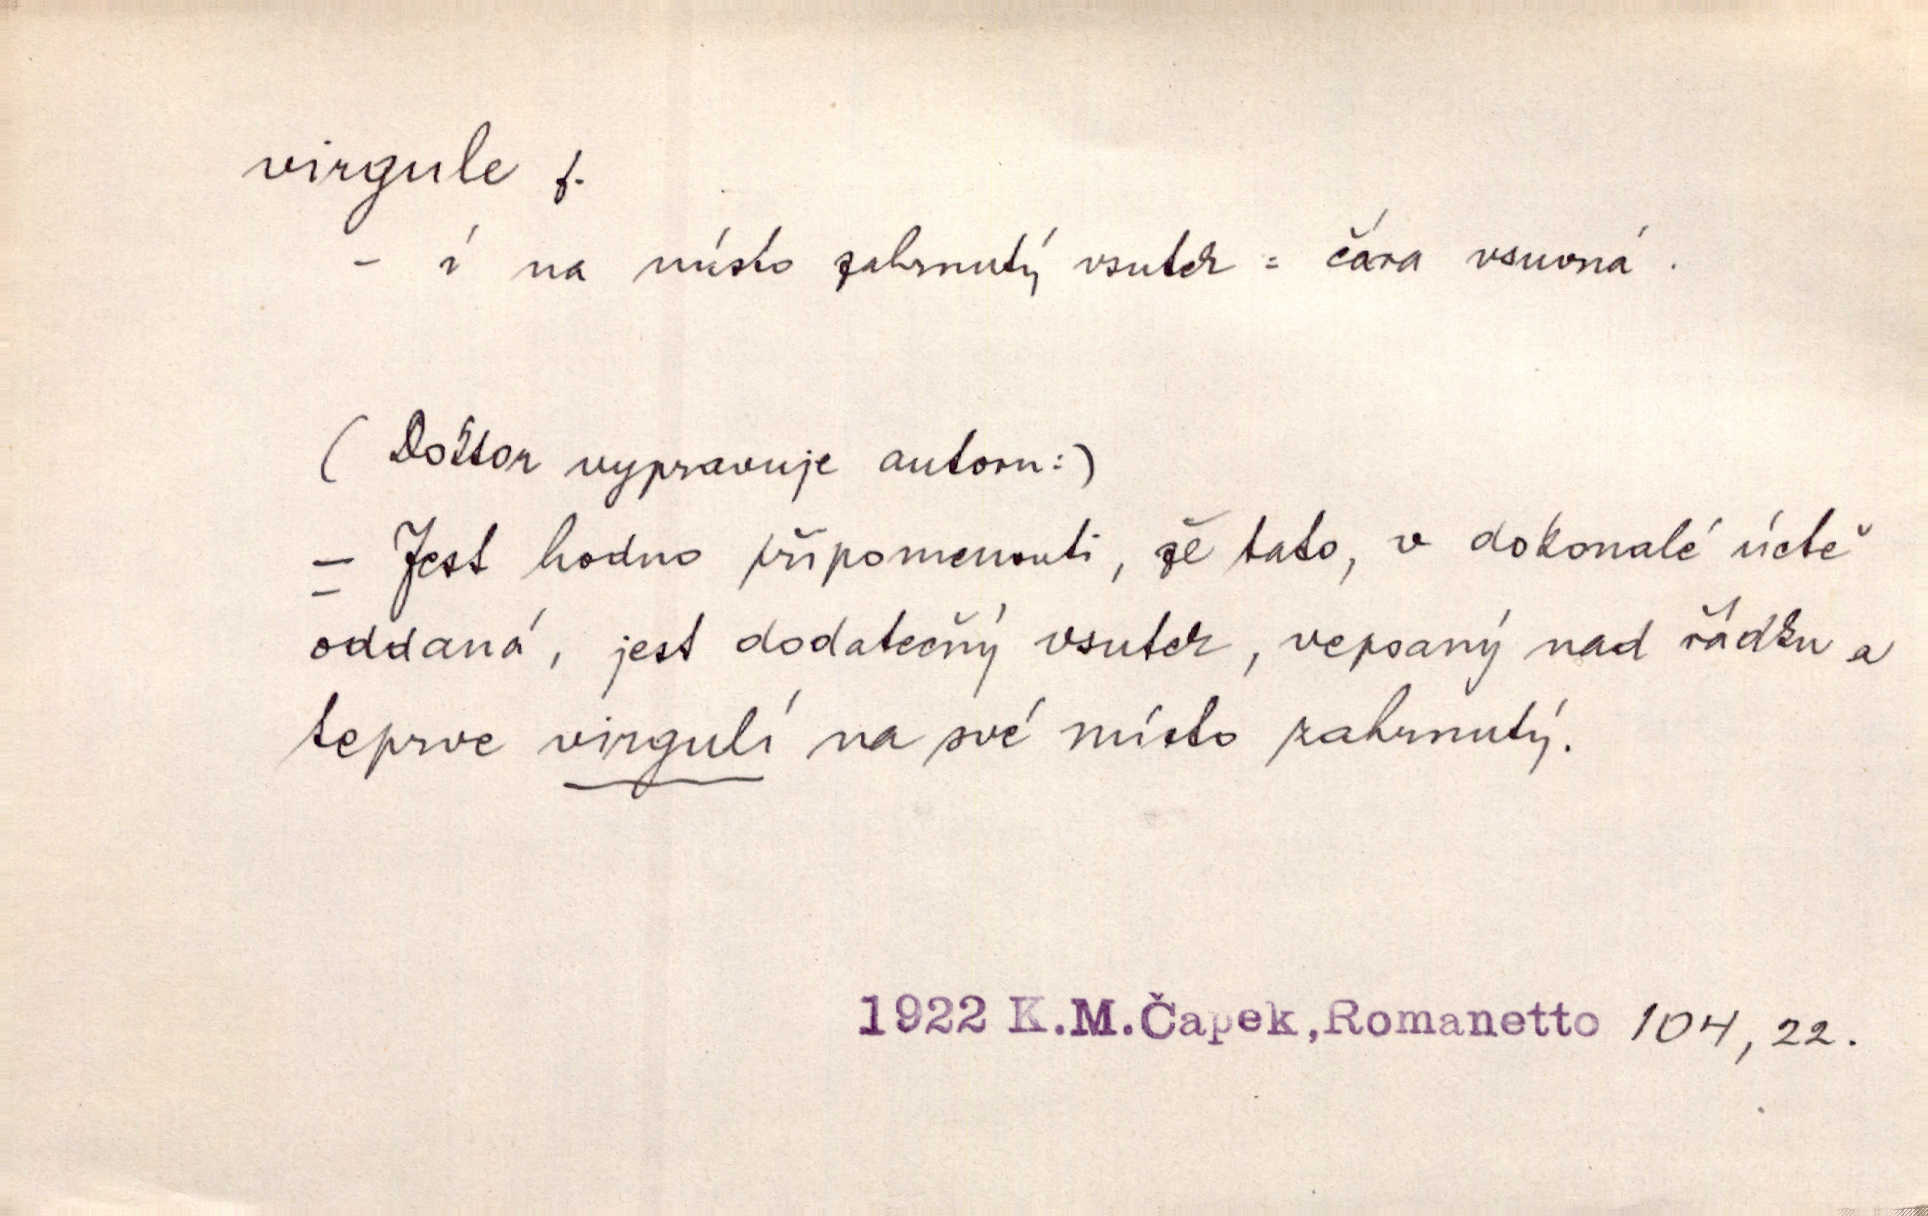 virgule f.
- í na místo zahrnutý vsutek = čára vsuvná.
(Doktor vypravuje autoru:)
- Jest hodno připomenouti, že tato, v dokonalé úctě
oddaná, jest dodatečný vsutek, vepsaný nad řádku a
teprve virgulí na své místo zahrnutý.
1922 K.M.Čapek,Romanetto 104,22.